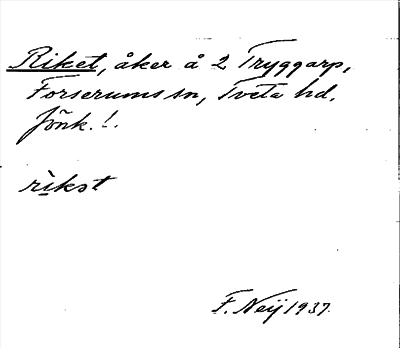 Riket, åker å 2 Tryggarp,
Forserums sn, Tveta hd.
Jönk. l.
rikst
F. Neij 1937.